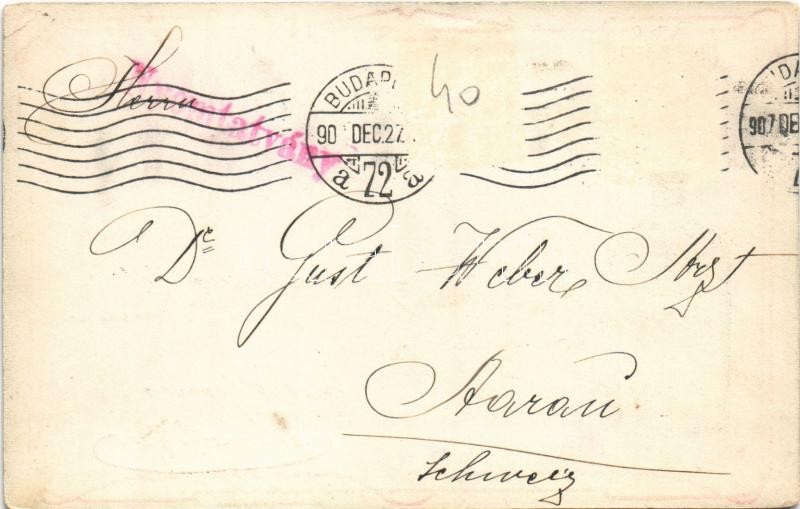 Herrn
Nyomtatvány
BUDAP
90 DEC.27
72
a a
40
DA
907 DE
Dr Gust Weber Arzt
Aarau
Schweiz